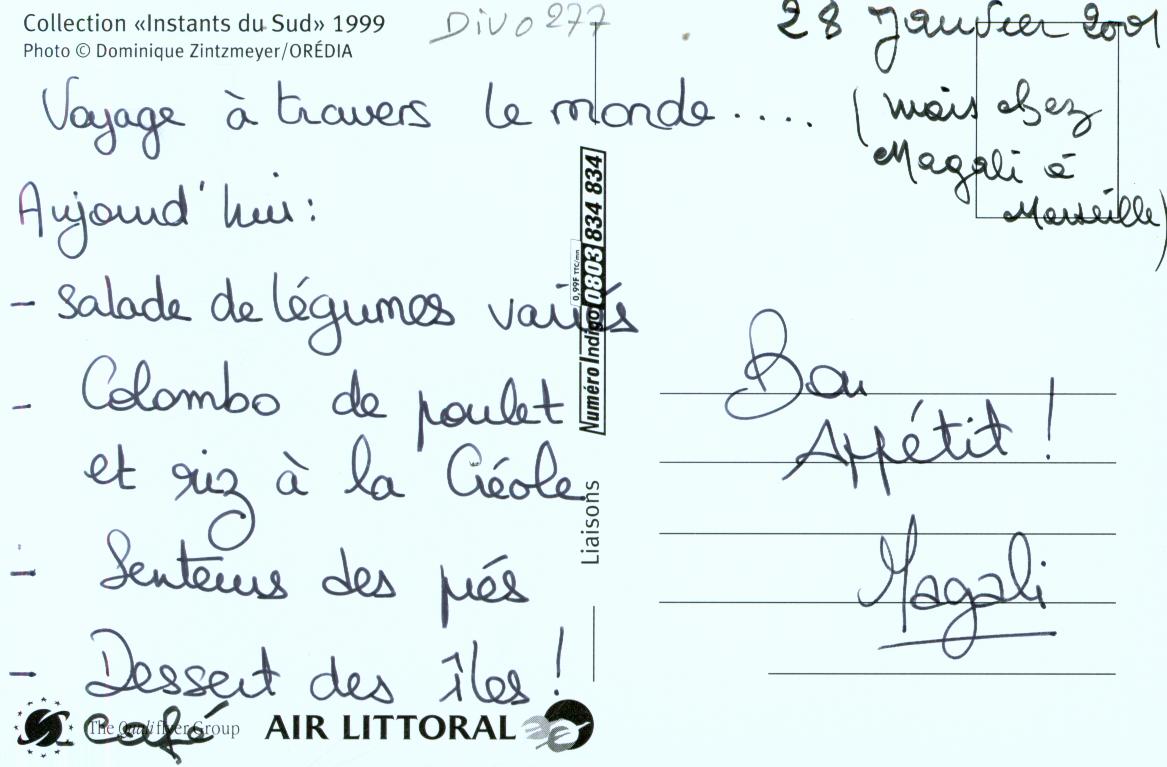 Collection «Instants du Sud» 1999
Photo © Dominique Zintzmeyer/ORÉDIA
Divo 277
28 Janvier 2001
(mais chez
Magali à
Marseille)
Voyage à travers le monde....
Aujourd'hui:
- Salade de légumes variés
- Colombo de poulet
et riz à la Créole
- Senteurs des prés
- Dessert des îles!
- Café
Numéro Indigo 0803 834 834
0,99F TTC/mn
Liaisons
Bon
Appétit!
Magali
The Qualiflyer Group
AIR LITTORAL